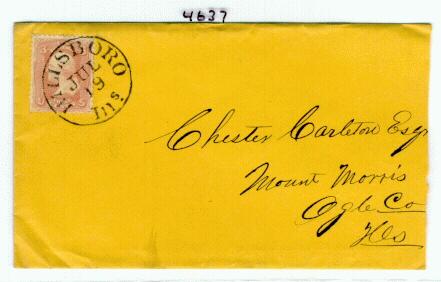 4637
HILLSBORO
JUL
19
Ills.
Chester Carleton Esqr
Mount Morris
Ogle Co
Ills